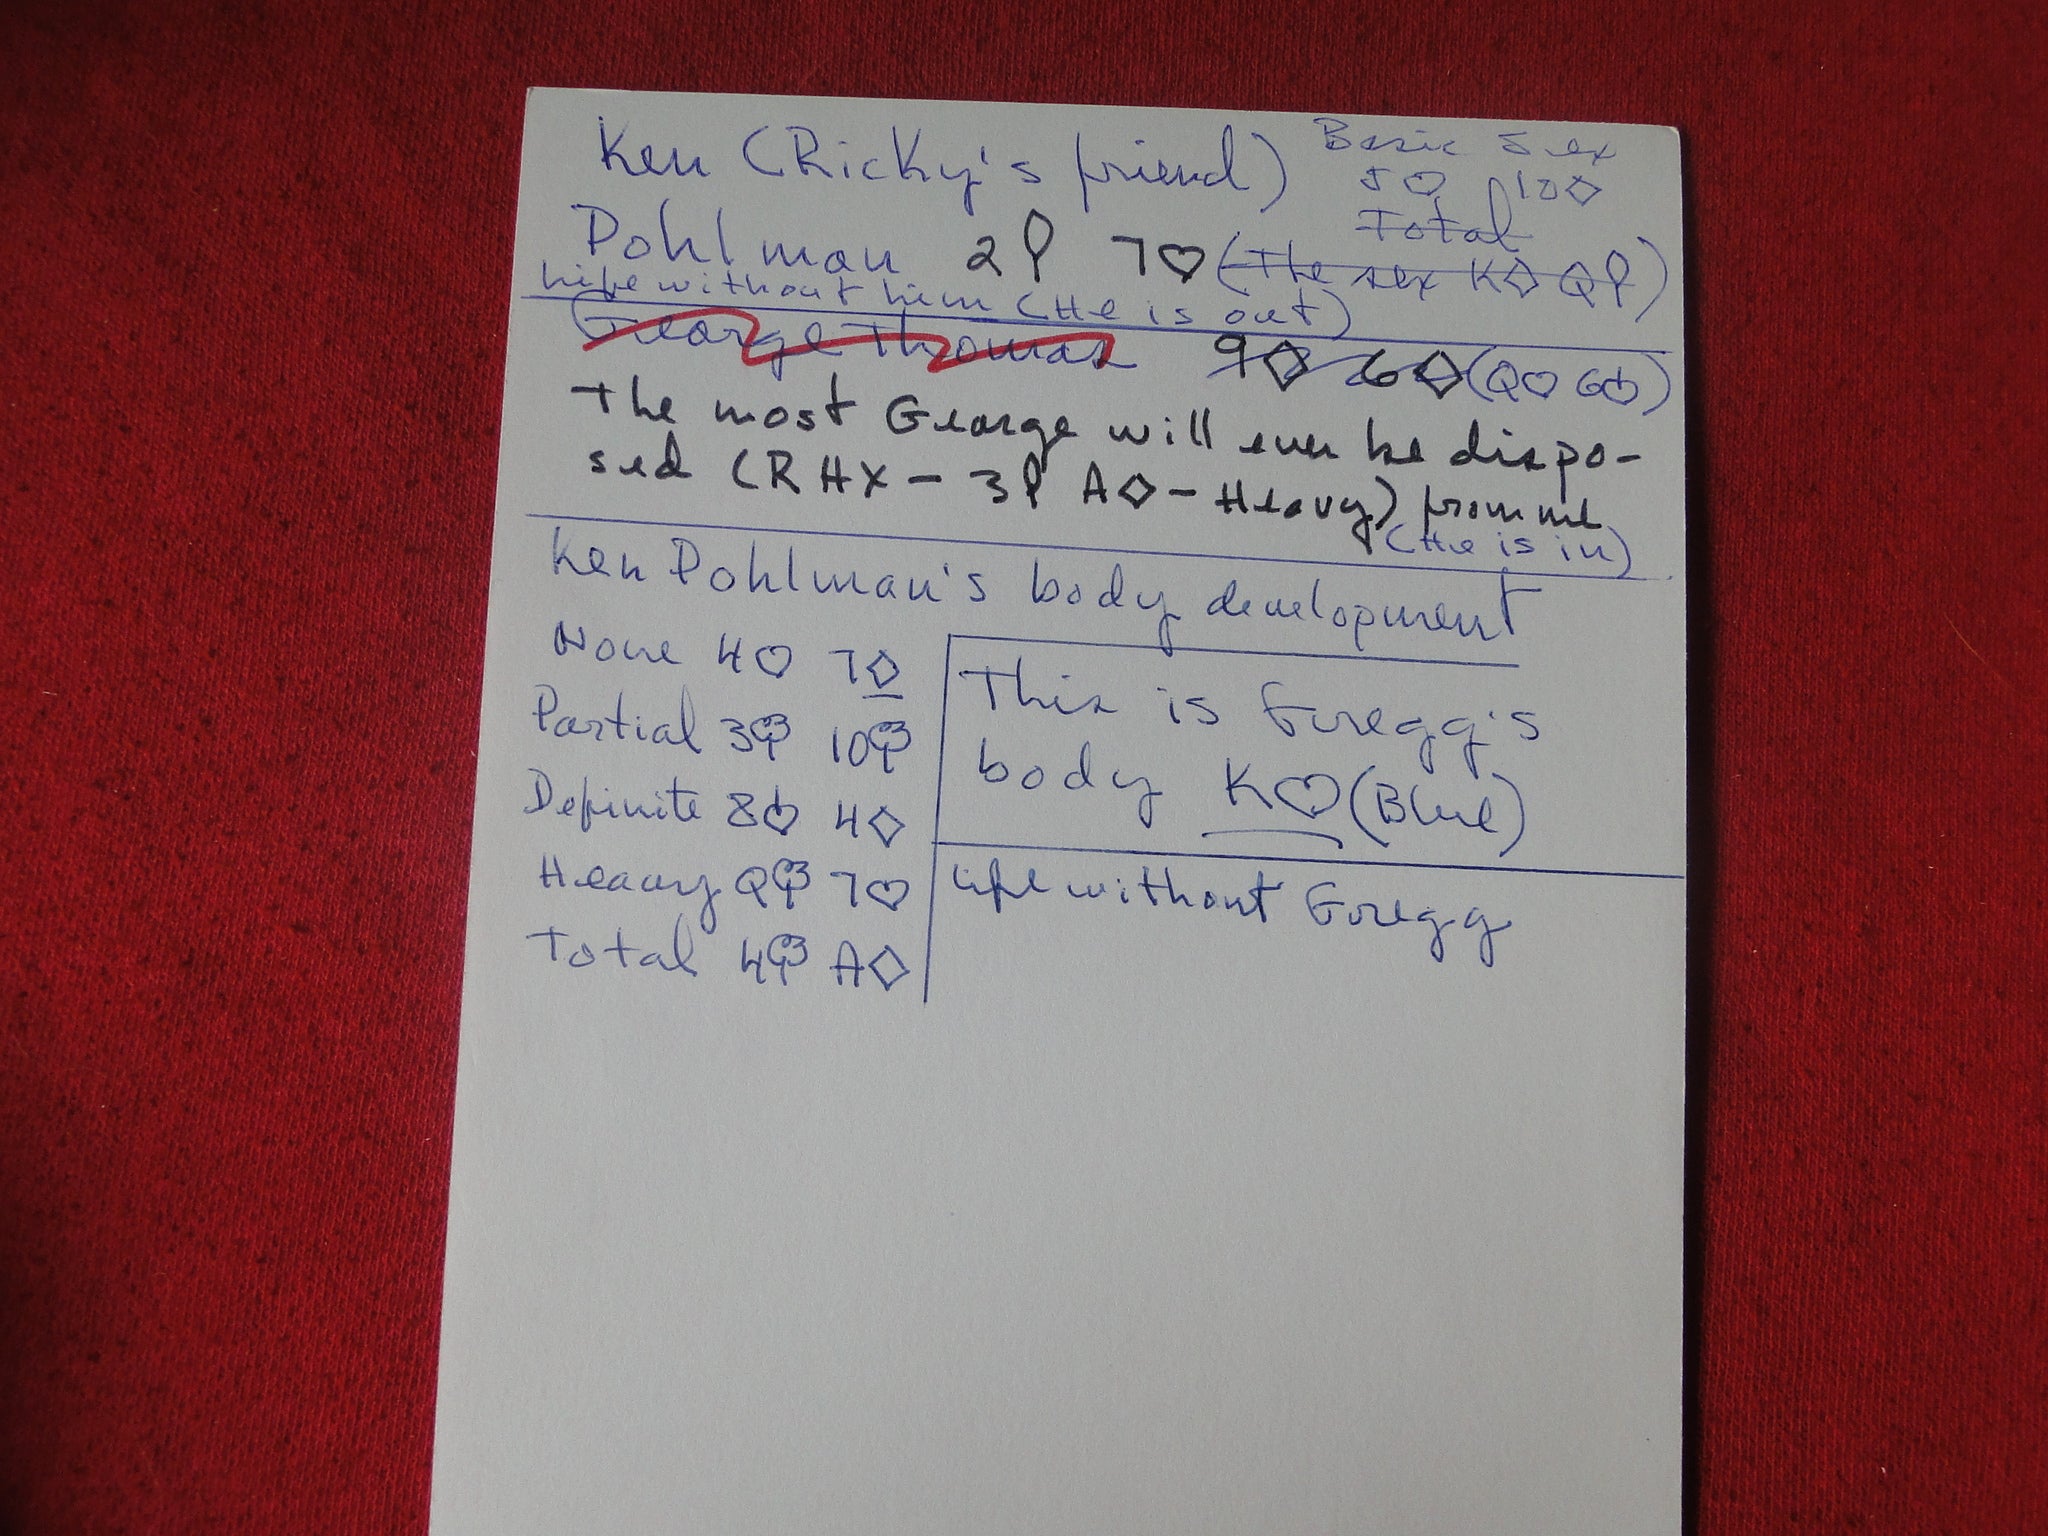 Ken (Ricky's friend) Basic Sex
5♡ 10♢
Total
Pohlman 2 7♡ (The sex K♢ Q)
Life without him (He is out)
George Thomas 9♢ 6♢ (Q♡ 6)
The most George will ever be dispo-
sed (RHX – 3 A♢ – Heavy) from me
(He is in)
Ken Pohlman's body development
None 4♡ 7♢
Partial 3♧ 10♧
Definite 8 4♢
Heavy Q♧ 7♡
Total 4♧ A♢
This is Gregg's
body K♡ (Blue)
Life without Gregg